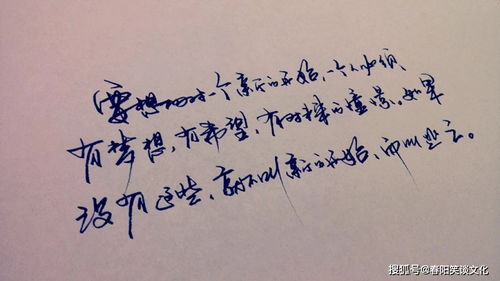 要想面对一个新的开始,一个人必须
有梦想,有希望,有对未来的憧憬。如果
没有这些,就不叫新的开始,而叫逃亡。
搜狐号@春阳笑谈文化